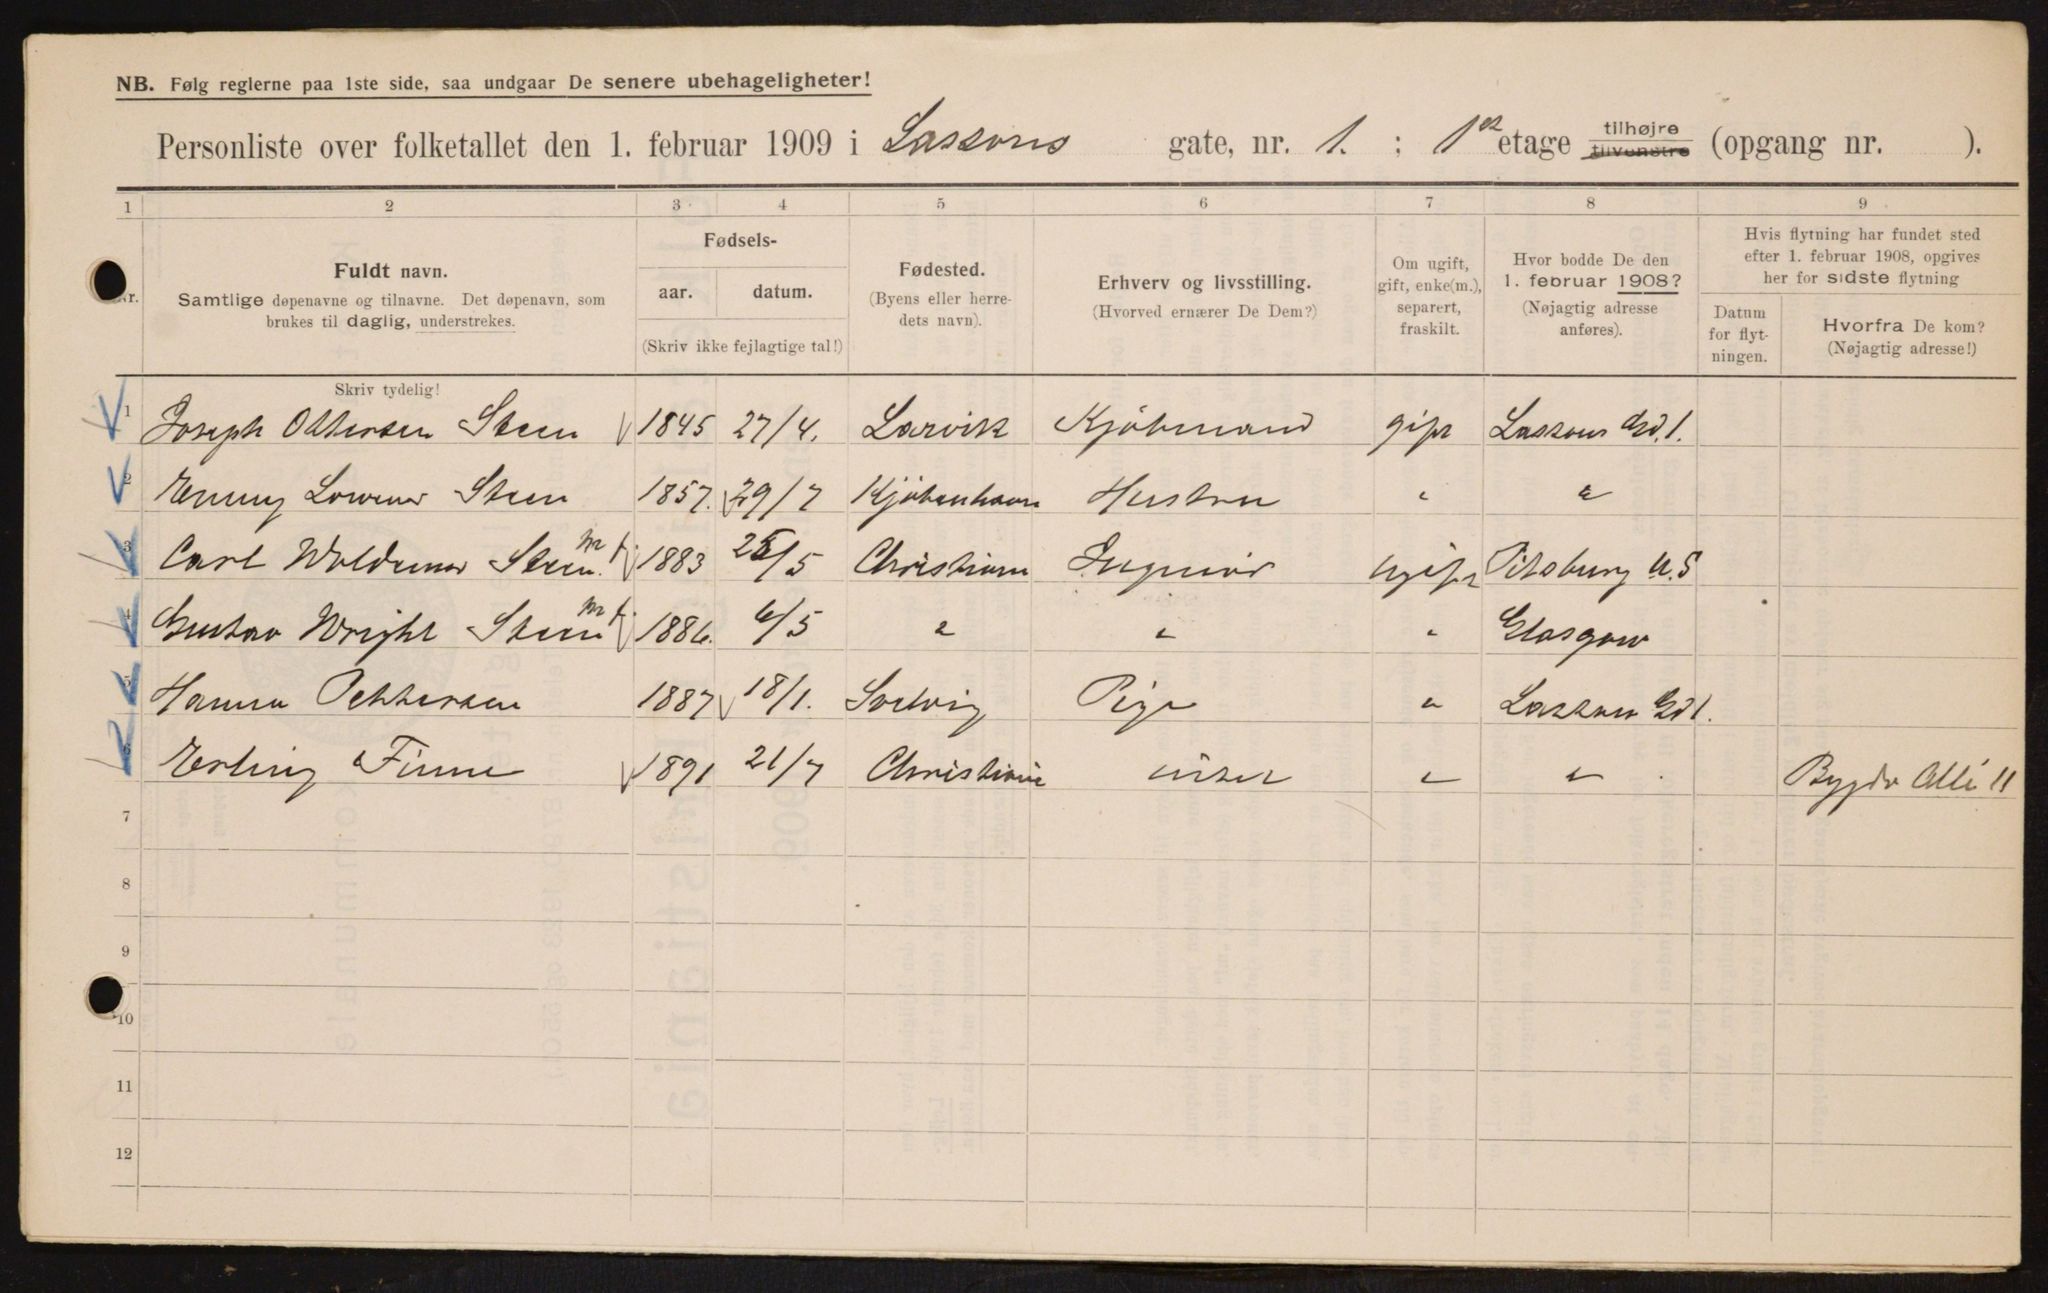 NB. Følg reglerne paa 1ste side, saa undgaar De senere ubehageligheter!
Personliste over folketallet den 1. februar 1909 i Lassons gate, nr. 1. ; 1ste etage tilhøjre tilvenstre (opgang nr. ).
1 2 3 4 5 6 7 8 9
Nr.
Fuldt navn.
Samtlige døpenavne og tilnavne. Det døpenavn, som
brukes til daglig, understrekes.
Fødsels-
aar. datum.
(Skriv ikke fejlagtige tal!)
Fødested.
(Byens eller herre-
dets navn).
Erhverv og livsstilling.
(Hvorved ernærer De Dem?)
Om ugift,
gift, enke(m.),
separert,
fraskilt.
Hvor bodde De den
1. februar 1908?
(Nøjagtig adresse
anføres).
Hvis flytning har fundet sted
efter 1. februar 1908, opgives
her for sidste flytning
Datum
for flyt-
ningen.
Hvorfra De kom?
(Nøjagtig adresse!)
Skriv tydelig!
1 Joseph Ottersen Steen 1845 27/4. Larvik Kjøbmand gift Lassons Gd. 1.
2 Emmy Steen 1857. 29/7 Kjøbenhavn Hustru " "
3 Carl Woldemar Steen 1883 25/5 Christiania Ingeniør ugift Pitsburg U.S
4 Gustav Wright Steen 1886. 6/5 " " " Glasgow
5 Hanna Pettersen 1887 18/1. Solvig Pige " Lassons Gd 1.
6 Erling Finne 1891 21/7 Christiania " " Bygdø Allé 11
7
8
9
10
11
12